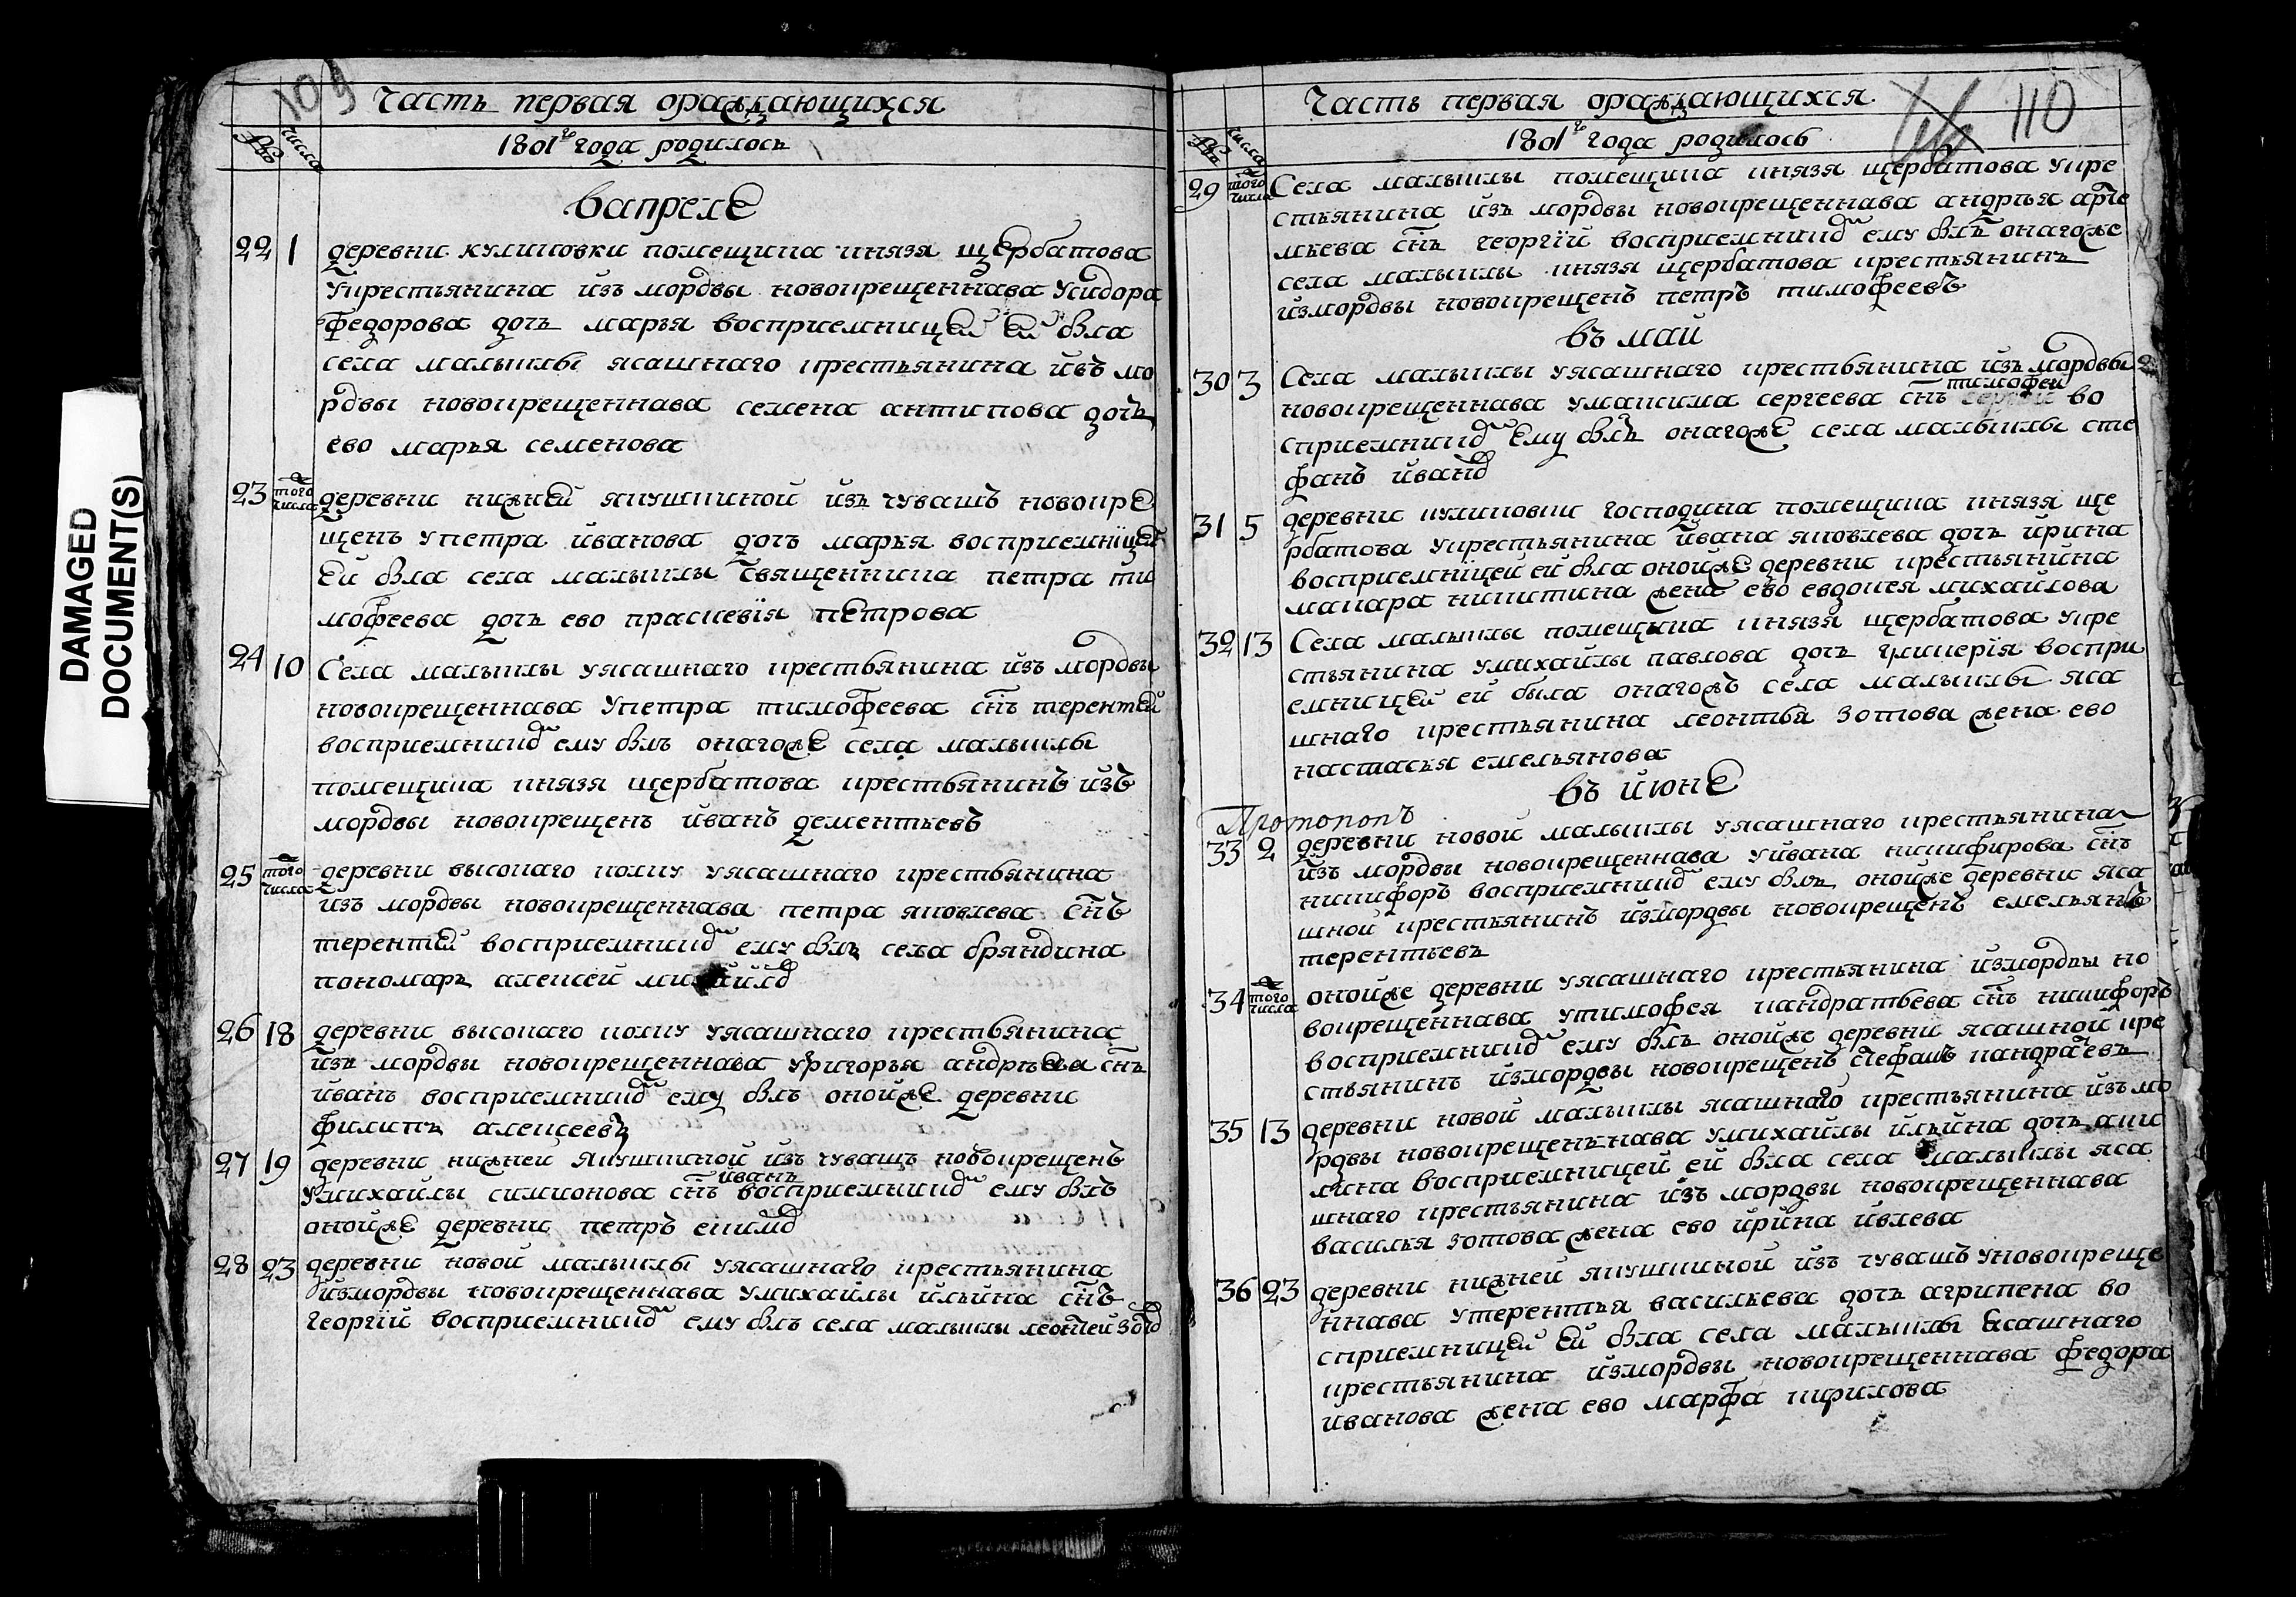 109
Часть первая ораждающихся
№ число
1801го года родилось
вапреле
22 1 деревни куликовки помещика князя щербатова
Укрестьянина изъ мордвы новокрещеннава Усидора
федорова дочь марья восприемницей ей была
села малыклы ясашнаго крестьянина изъ мо
рдвы новокрещеннава семена антипова дочь
ево марья семенова
23 того числа деревни нижней якушкиной изъ чувашъ новокре
щенъ упетра иванова дочь марья восприемницей
ей была села малыклы священника петра ти
мофеева дочь ево праскевїя петрова
24 10 Села малыклы уясашнаго крестьянина изъ мордвы
новокрещеннава упетра тимофеева снъ терентей
восприемникомъ ему былъ онагоже села малыклы
помещика князя щербатова крестьянинъ изъ
мордвы новокрещенъ иванъ дементьевъ
25 того числа деревни высокаго колку уясашнаго крестьянина
изъ мордвы новокрещеннава петра яковлева снъ
терентей восприемникомъ ему былъ села бряндина
пономарь алексей михайловъ
26 18 деревни высокаго колку уясашнаго крестьянина
изъ мордвы новокрещеннава угригорья андрѣева снъ
иванъ восприемникомъ ему былъ онойже деревни
филипъ алексеевъ
27 19 деревни нижней якушкиной изъ чувашъ новокрещенъ
иванъ
Умихайлы симионова снъ восприемникомъ ему былъ
онойже деревни петръ
28 23 деревни новой малыклы уясашнаго крестьянина
измордвы новокрещеннава умихайлы ильина снъ
георгїй восприемникомъ ему былъ села малыклы леонтей зотовъ
110
Часть первая ораждающихся
№ число
1801го года родилось
29 того числа Села малыклы помещика князя щербатова укре
стьянина изъ мордвы новокрещеннава андрѣя арте
мьева снъ георгїй восприемникомъ ему былъ онагоже
села малыклы князя щербатова крестьянинъ
измордвы новокрещенъ петръ тимофеевъ
въ май
30 3 Села малыклы уясашнаго крестьянина изъ мордвы
тимофей
новокрещеннава умаксима сергеева снъ во
сприемникомъ ему былъ онагоже села малыклы сте
фанъ ивановъ
31 5 деревни куликовки господина помещика князя ще
рбатова укрестьянина ивана яковлева дочь ирина
восприемницей ей была онойже деревни крестьянина
макара никитина жена ево евдокея михаилова
32 13 Села малыклы помещика князя щербатова укре
стьянина умихайлы павлова дочь гликерїя воспри
емницей ей была онагожъ села малыклы яса
шнаго крестьянина леонтья зотова жена ево
настасья емельянова
въ июне
Протопопъ
33 2 деревни новой малыклы уясашнаго крестьянина
изъ мордвы новокрещеннава уивана никифирова снъ
никифоръ восприемникомъ ему былъ онойже деревни яса
шной крестьянинъ измордвы новокрещенъ емельянъ
терентьевъ
34 того числа онойже деревни уясашнаго крестьянина измордвы но
вокрещеннава утимофея кандратьева снъ никифоръ
восприемникомъ ему былъ онойже деревни ясашной кре
стьянинъ измордвы новокрещенъ стефанъ кандратевъ
35 13 деревни новой малыклы ясашнаго крестьянина изъ мо
рдвы новокрещенънава умихайлы ильина дочь аки
лина восприемницей ей была села малыклы яса
шнаго крестьянина изъ мордвы новокрещеннава
василья зотова жена ево ирина ивлева
36 23 деревни нижней якушкиной изъ чувашъ уновокреще
ннава утерентья васильева дочь агрипена во
сприемницей ей была села малыклы ясашнаго
крестьянина измордвы новокрещеннава федора
иванова жена ево марфа кирилова
DAMAGED
DOCUMENT(S)